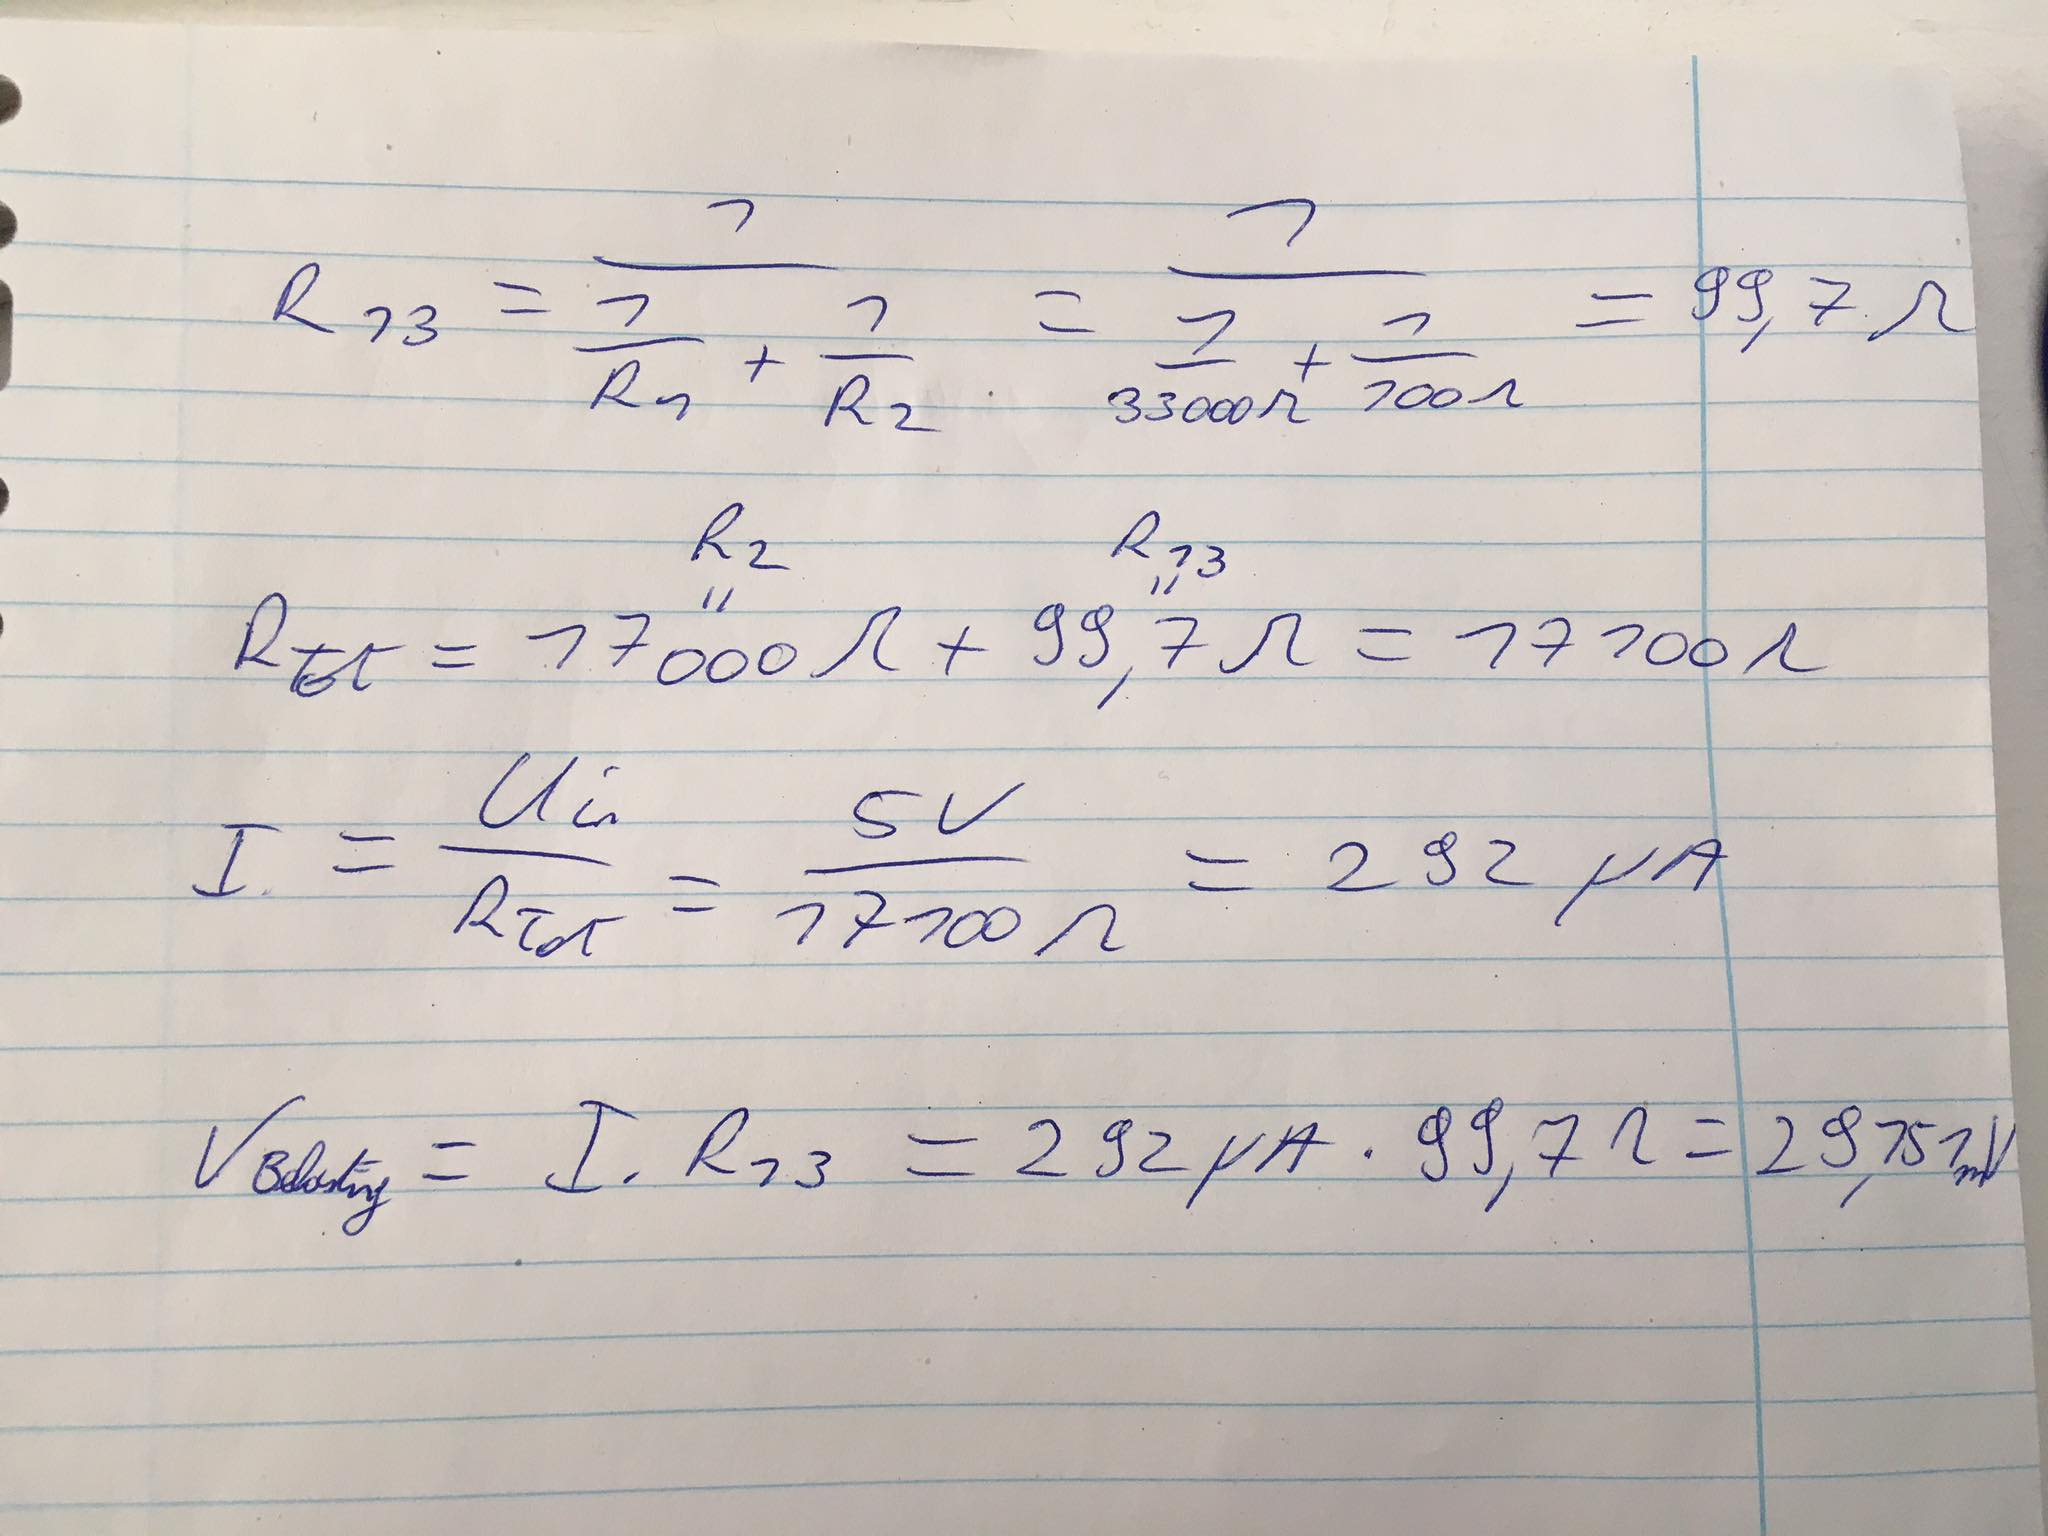 R13 = 1/(1/R1 + 1/R2) = 1/(1/33000Ω + 1/100Ω) = 99,7 Ω
R2 R13
" "
RTot = 17000 Ω + 99,7 Ω = 17100 Ω
I = Uin/RTot = 5V/17100 Ω = 292 μA
VBelasting = I . R13 = 292 μA . 99,7 Ω = 29,151 mV